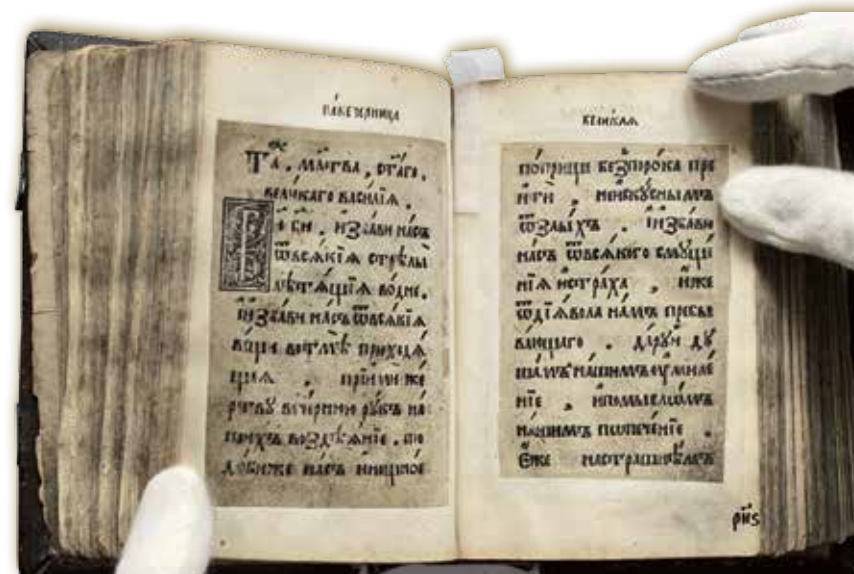 павечерница
Та̑. мл҃тва, ст҃аго.
великаго василїѧ.
Г҃и бж҃е. избави насъ
ѿвсѧкїѧ стрѣлы
летѧщїѧ водне.
ѝзбави насъ ѿвсѧкїѧ
вещи вотмѣ приходѧ
щїѧ. прїими же
ртву вечернюю рꙋкъ на
шихъ воздѣѧнїе. по
добиже насъ инощное
великаѧ
поприще безпорока пре
ити, неискꙋсны
ѿзлыхъ. ѝзбави
насъ ѿвсѧкого смꙋще
нїѧ истраха, иже
ѿдїѧвола намъ прибы
вающаго. дарꙋй дꙋ
шамъ нашимъ ꙋмиле
нїе, ипомысломъ
нашимъ попеченїе.
Еже настрашнѣмъ
рн҃ѕ